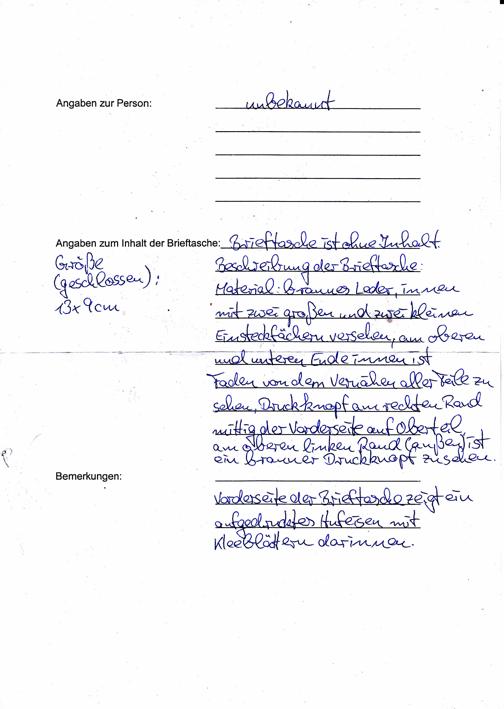 Angaben zur Person: unbekannt
Angaben zum Inhalt der Brieftasche: Brieftasche ist ohne Inhalt.
Größe
(geschlossen):
13x9cm
Beschreibung der Brieftasche:
Material: braunes Leder, innen
mit zwei großen und zwei kleinen
Einsteckfächern versehen, am oberen
und unteren Ende innen ist
Faden von dem Vernähen aller Teile zu
sehen, Druckknopf am rechten Rand
mittig der Vorderseite auf Oberteil,
am oberen linken Rand (außen) ist
ein brauner Druckknopf zu sehen.
Bemerkungen:
Vorderseite der Brieftasche zeigt ein
aufgedrucktes Hufeisen mit
Kleeblättern darinnen.